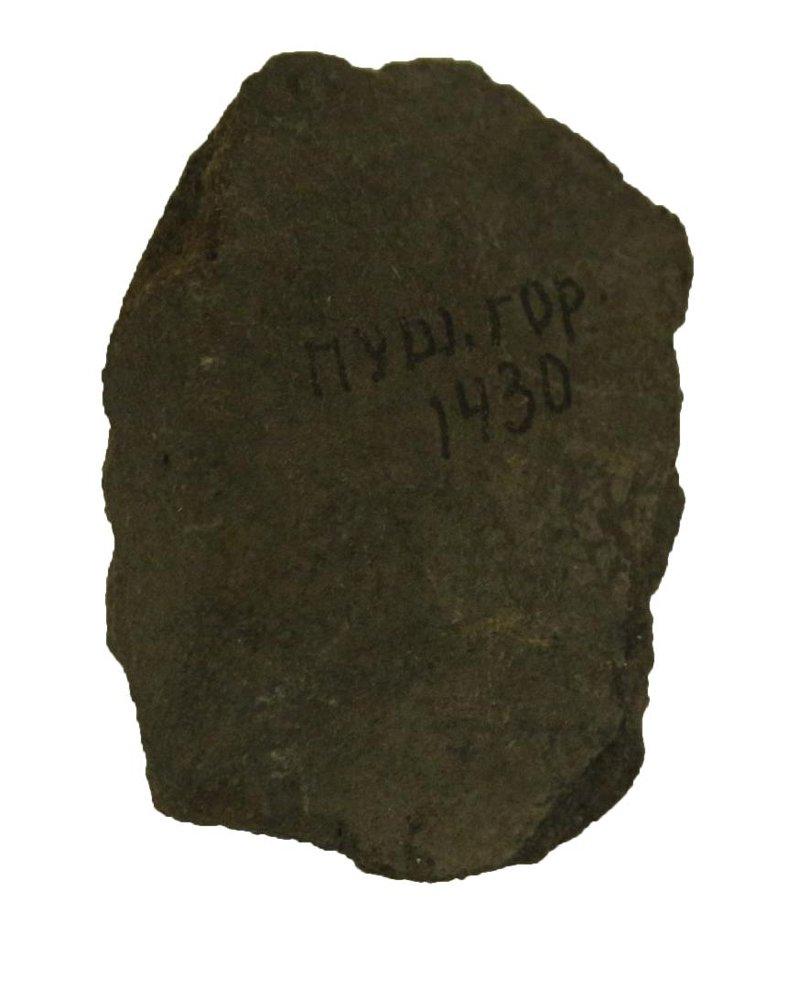 ПУШ. ГОР
1430